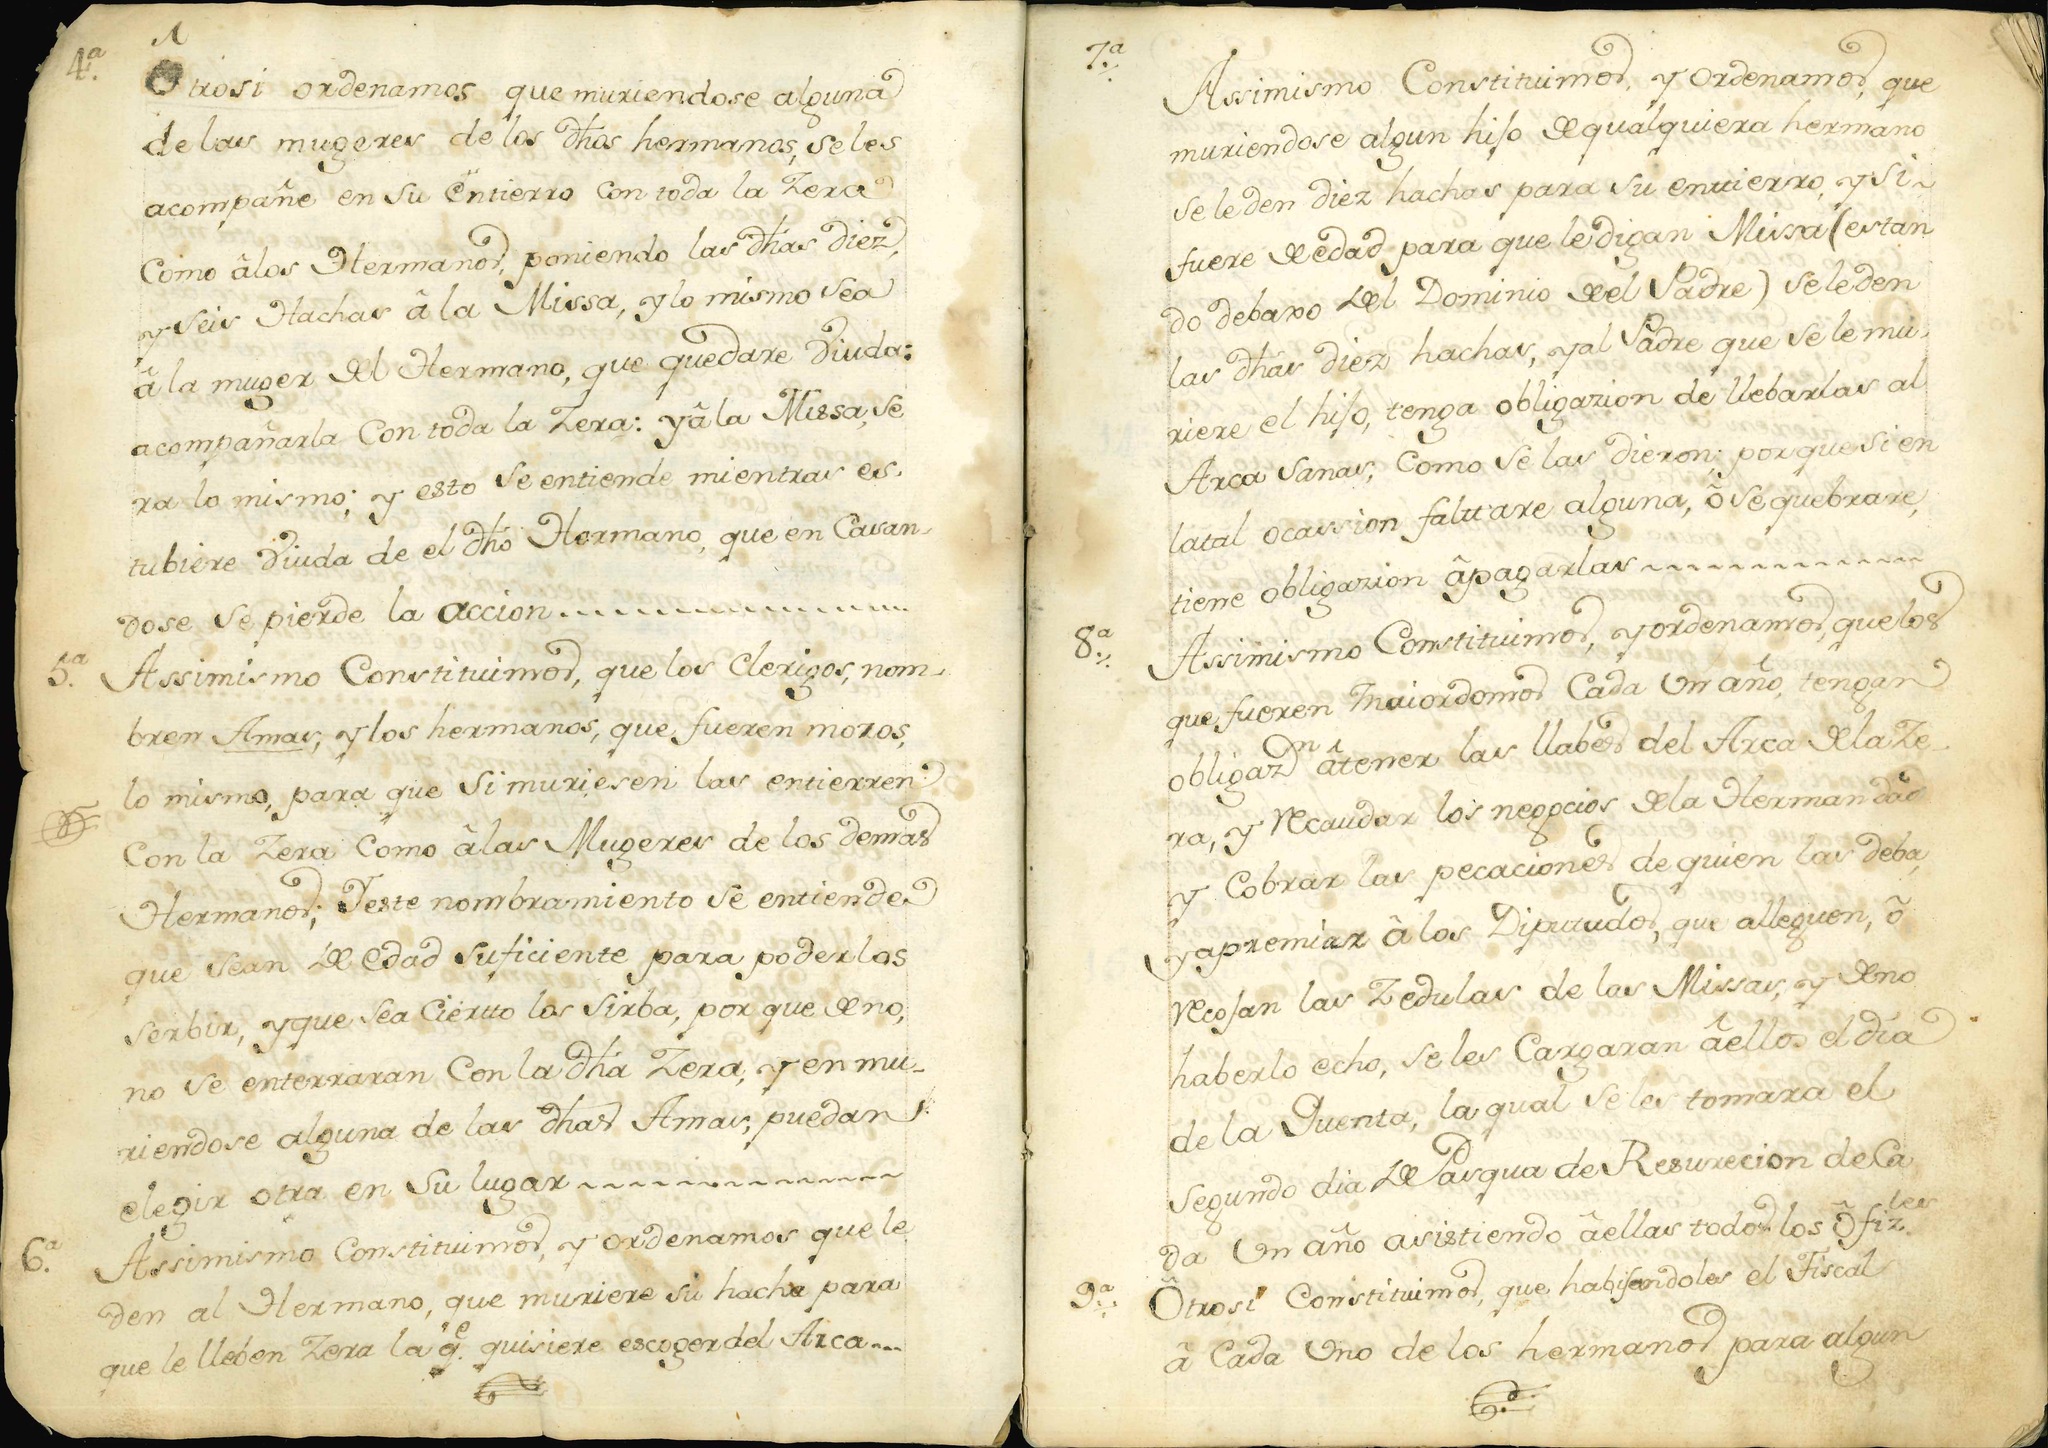 4ª Otrosi ordenamos que muriendose alguna
de las mugeres de los dhos hermanos, se les
acompañe en su entierro con toda la Zera
Como â los Hermanos, poniendo las dhas diez,
y seis Hachas â la Missa, y lo mismo sea
â la muger del Hermano, que quedare Viuda:
acompañarla Con toda la Zera: y â la Missa, se
ra lo mismo; y esto se entiende mientras es-
tubiere Viuda de el dho Hermano, que en Casan-
dose se pierde la accion
5ª Assimismo Constituimos, que los Clerigos, nom-
bren Amas, y los hermanos, que fueren mozos,
lo mismo, para que si muriesen las entierren
Con la Zera Como â las Mugeres de los demas
Hermanos; Y este nombramiento se entiende
que sean de edad suficiente para poderlos
serbir, y que sea Cierto los sirba, por que de no,
no se enterraran Con la dha Zera, y en mu-
riendose alguna de las dhas Amas, puedan
elegir otra en su lugar
6ª Assimismo Constituimos, y ordenamos que le
den al Hermano, que muriere su hacha para
que le lleben Zera la qe. quisiere escoger del Arca
7ª Assimismo Constituimos, y Ordenamos, que
muriendose algun hijo de qualquiera hermano
se le den diez hachas para su entierro, y si
fuere de edad para que le digan Missa (estan
do debaxo del Dominio de el Padre) se le den
las dhas diez hachas, y al Padre que se le mu-
riere el hijo, tenga obligazion de llebarlas al
Arca sanas, Como se las dieron; porque si en
la tal ocassion faltare alguna, ô se quebrare,
tiene obligazion â pagarlas
8ª Assimismo Constituimos, y ordenamos, que los
que fueren Maiordomos Cada Un año, tengan
obligazn â tener las llabes del Arca de la Ze-
ra, y recaudar los negocios de la Hermandad
y Cobrar las pecaciones de quien las deba,
y apremiar â los Diputados, que alleguen, ô
recojan las Zedulas de las Missas, y de no
haberlo echo, se les Cargaran â ellos el dia
de la Quenta, la qual se les tomara el
segundo dia de Pasqua de Resureccion de Ca
da Un año asistiendo â ellas todos los ôfizles
9ª Ôtrosi Constituimos, que habisandoles el Fiscal
â Cada Uno de los hermanos para algun